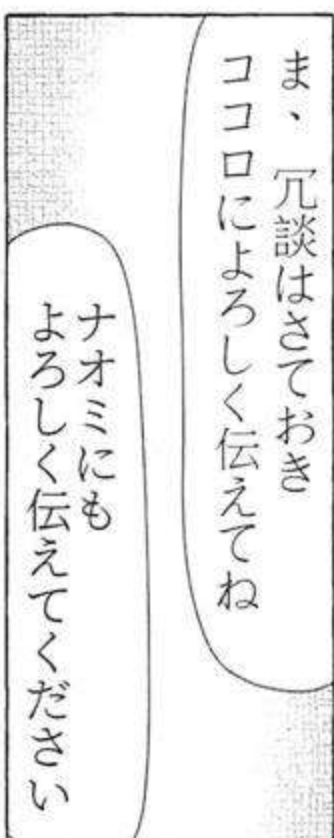 ま、冗談はさておき
ココロによろしく伝えてね
ナオミにも
よろしく伝えてください